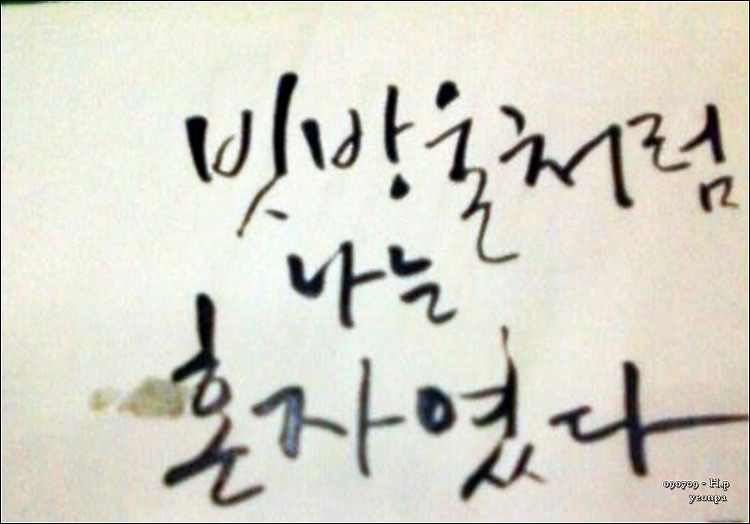 빗방울처럼
나는
혼자였다
090709 - H.p
yeonpa